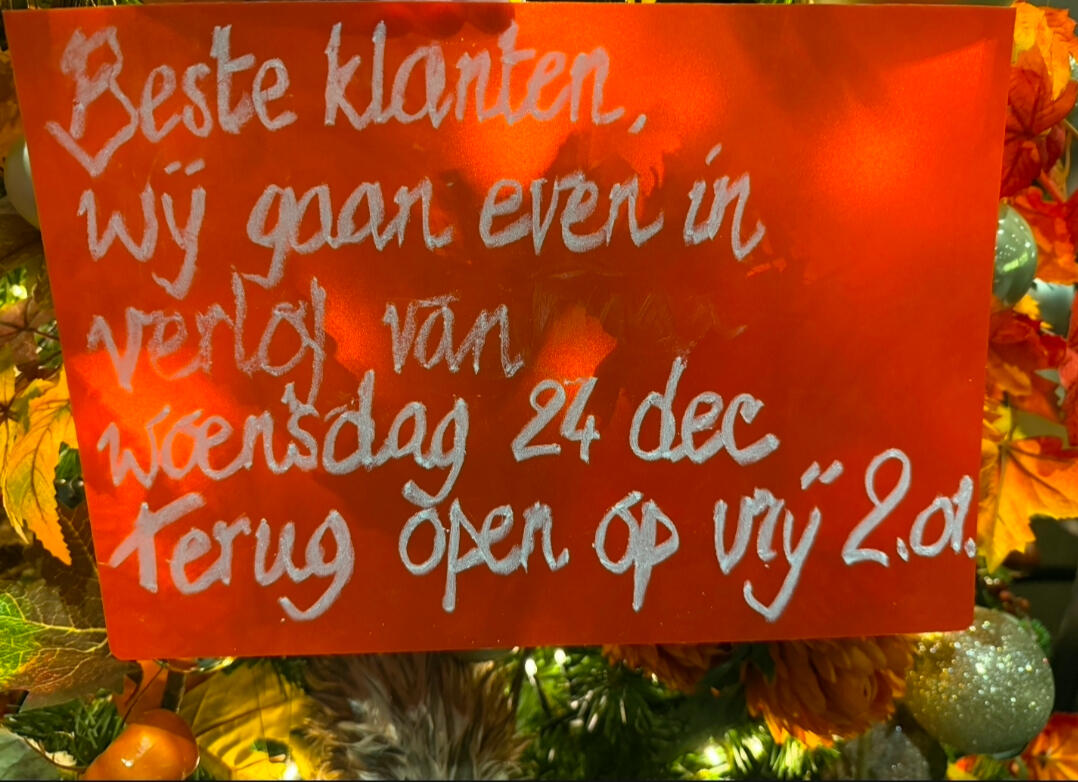 Beste klanten,
wij gaan even in
verlof van
woensdag 24 dec
Terug open op vrij 2.01.